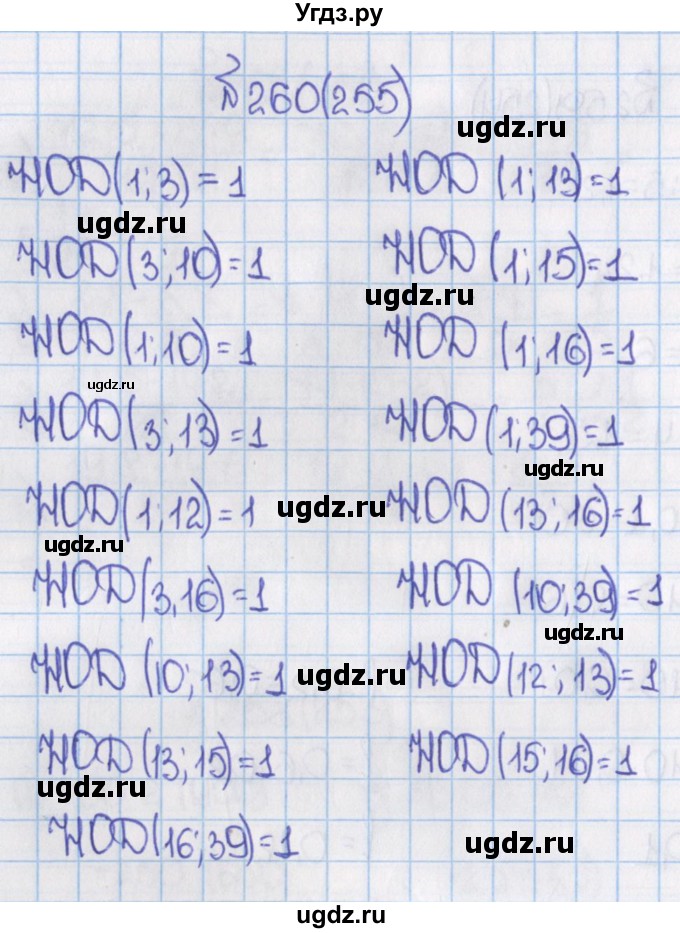 Угдз.ру
№ 260(255)
ugdz.ru
НОD(1; 3) = 1 НОD (1; 13) = 1
ugdz.ru
НОD(3; 10) = 1 НОD (1; 15) = 1
ugdz.ru
НОD(1; 10) = 1 НОD (1; 16) = 1
ugdz.ru
НОD(3; 13) = 1 НОD (1; 39) = 1
ugdz.ru
НОD(1; 12) = 1 ugdz.ru НОD (13; 16) = 1
ugdz.ru
НОD(3, 16) = 1 НОD (10; 39) = 1
ugdz.ru
НОD (10; 13) = 1 ugdz.ru НОD (12; 13) = 1
НОD(13; 15) = 1 НОD (15; 16) = 1
ugdz.ru
НОD(16; 39) = 1 ugdz.ru
ugdz.ru